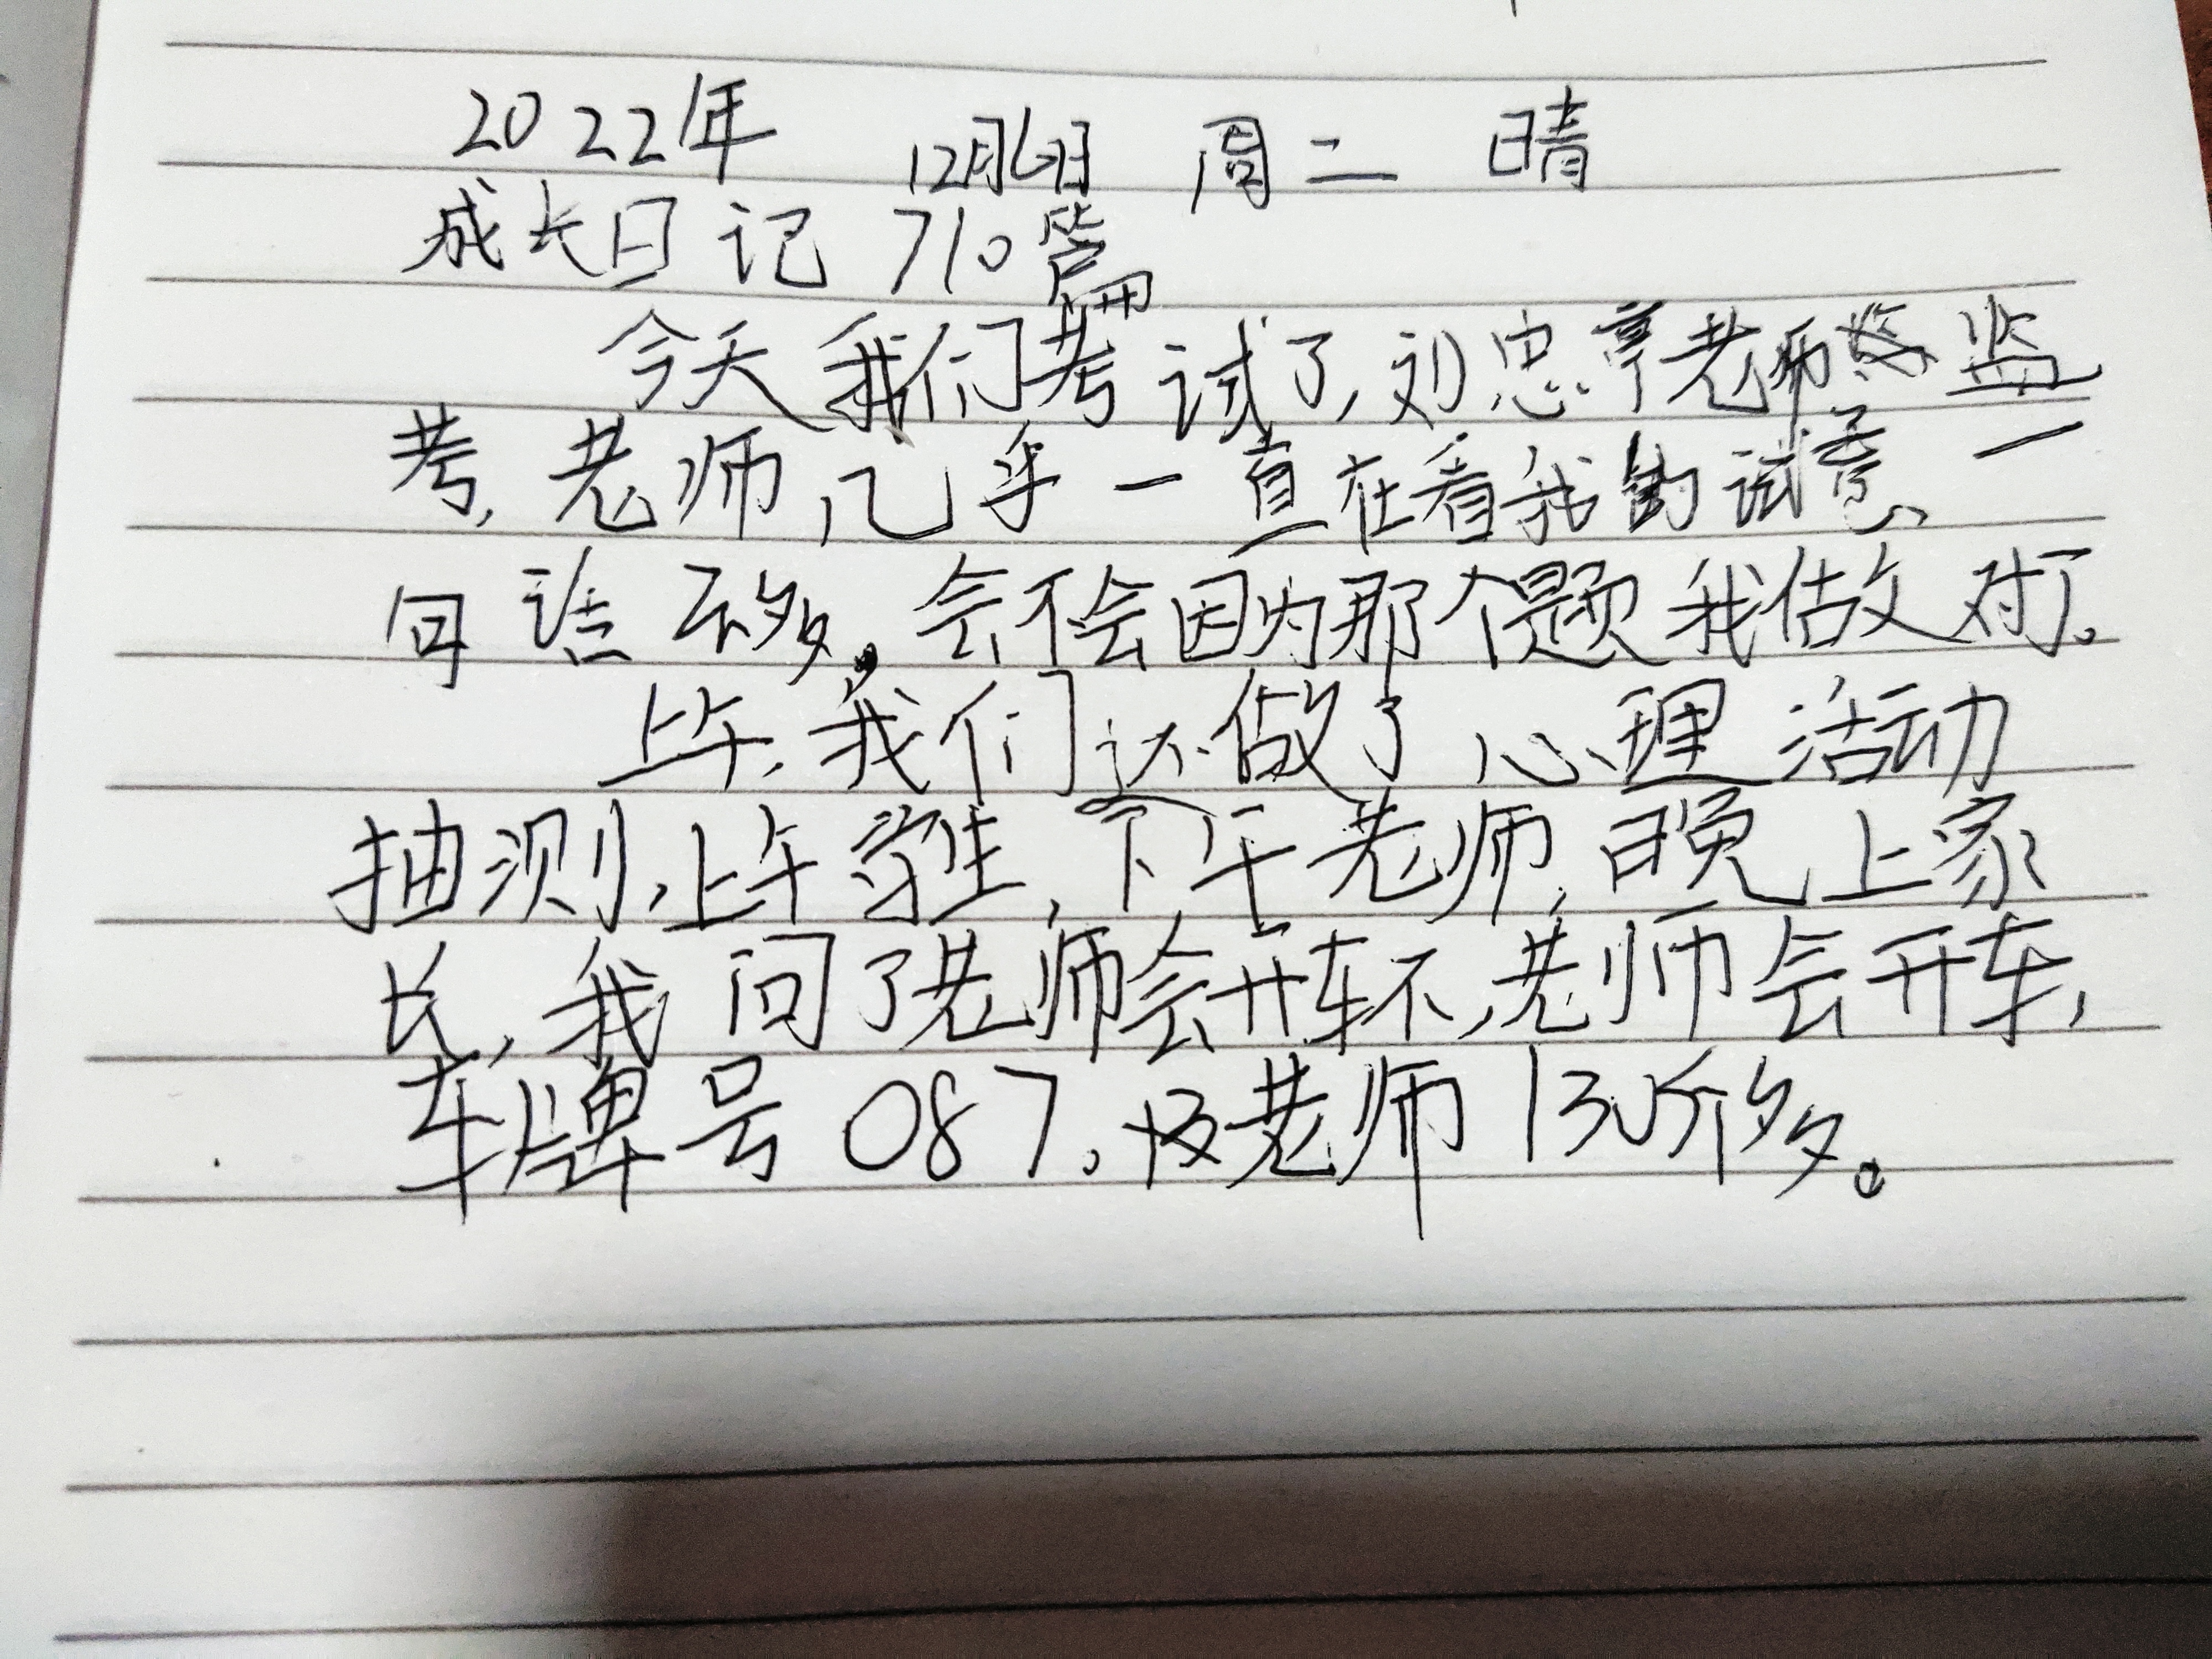 2022年 12月6日 周二 晴
成长日记 710篇
今天我们考试了,刘忠亨老师 监
考,老师几乎一直在看我的试卷,一
句话不多。会不会因为那个题我做对了。
上午,我们还做了心理活动
抽测,上午学生,下午老师,晚上家
长,我问了老师会开车不,老师会开车,
车牌号087,老师13斤多。